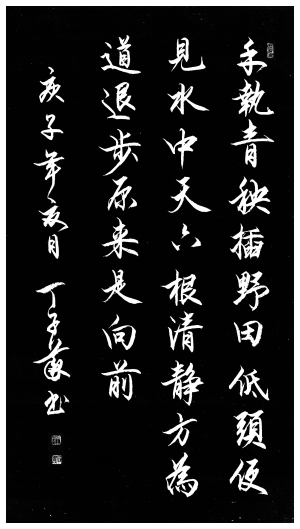 手執青秧插野田低頭便
見水中天六根清静方為
道退步原来是向前
庚子年夏月 丁子書